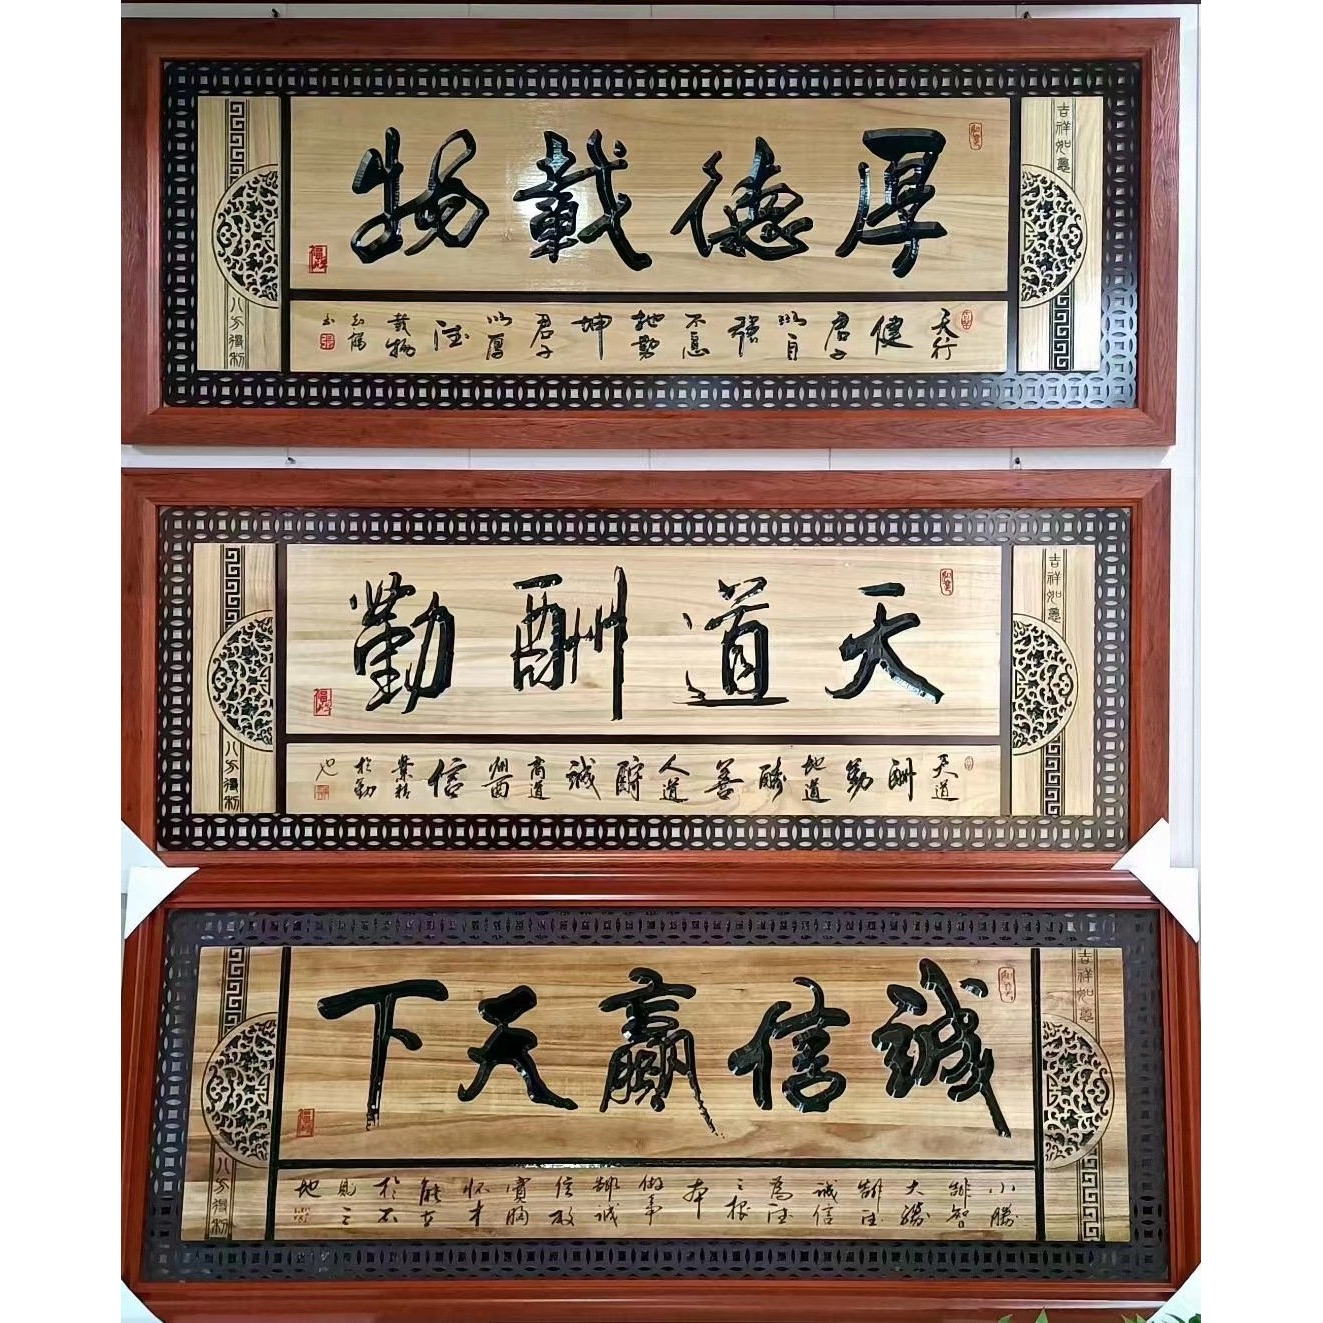 吉祥如意
厚德載物
天行健君子以自強不息地勢坤君子以厚德載物
八方得利
吉祥如意
天道酬勤
天道酬勤地道酬善人道酬誠商道酬信業精於勤也
八方得利
吉祥如意
誠信贏天下
小勝靠智大勝靠德誠信為德之根本做事靠誠信故寬胸怀才能立於不敗之地
八方得利